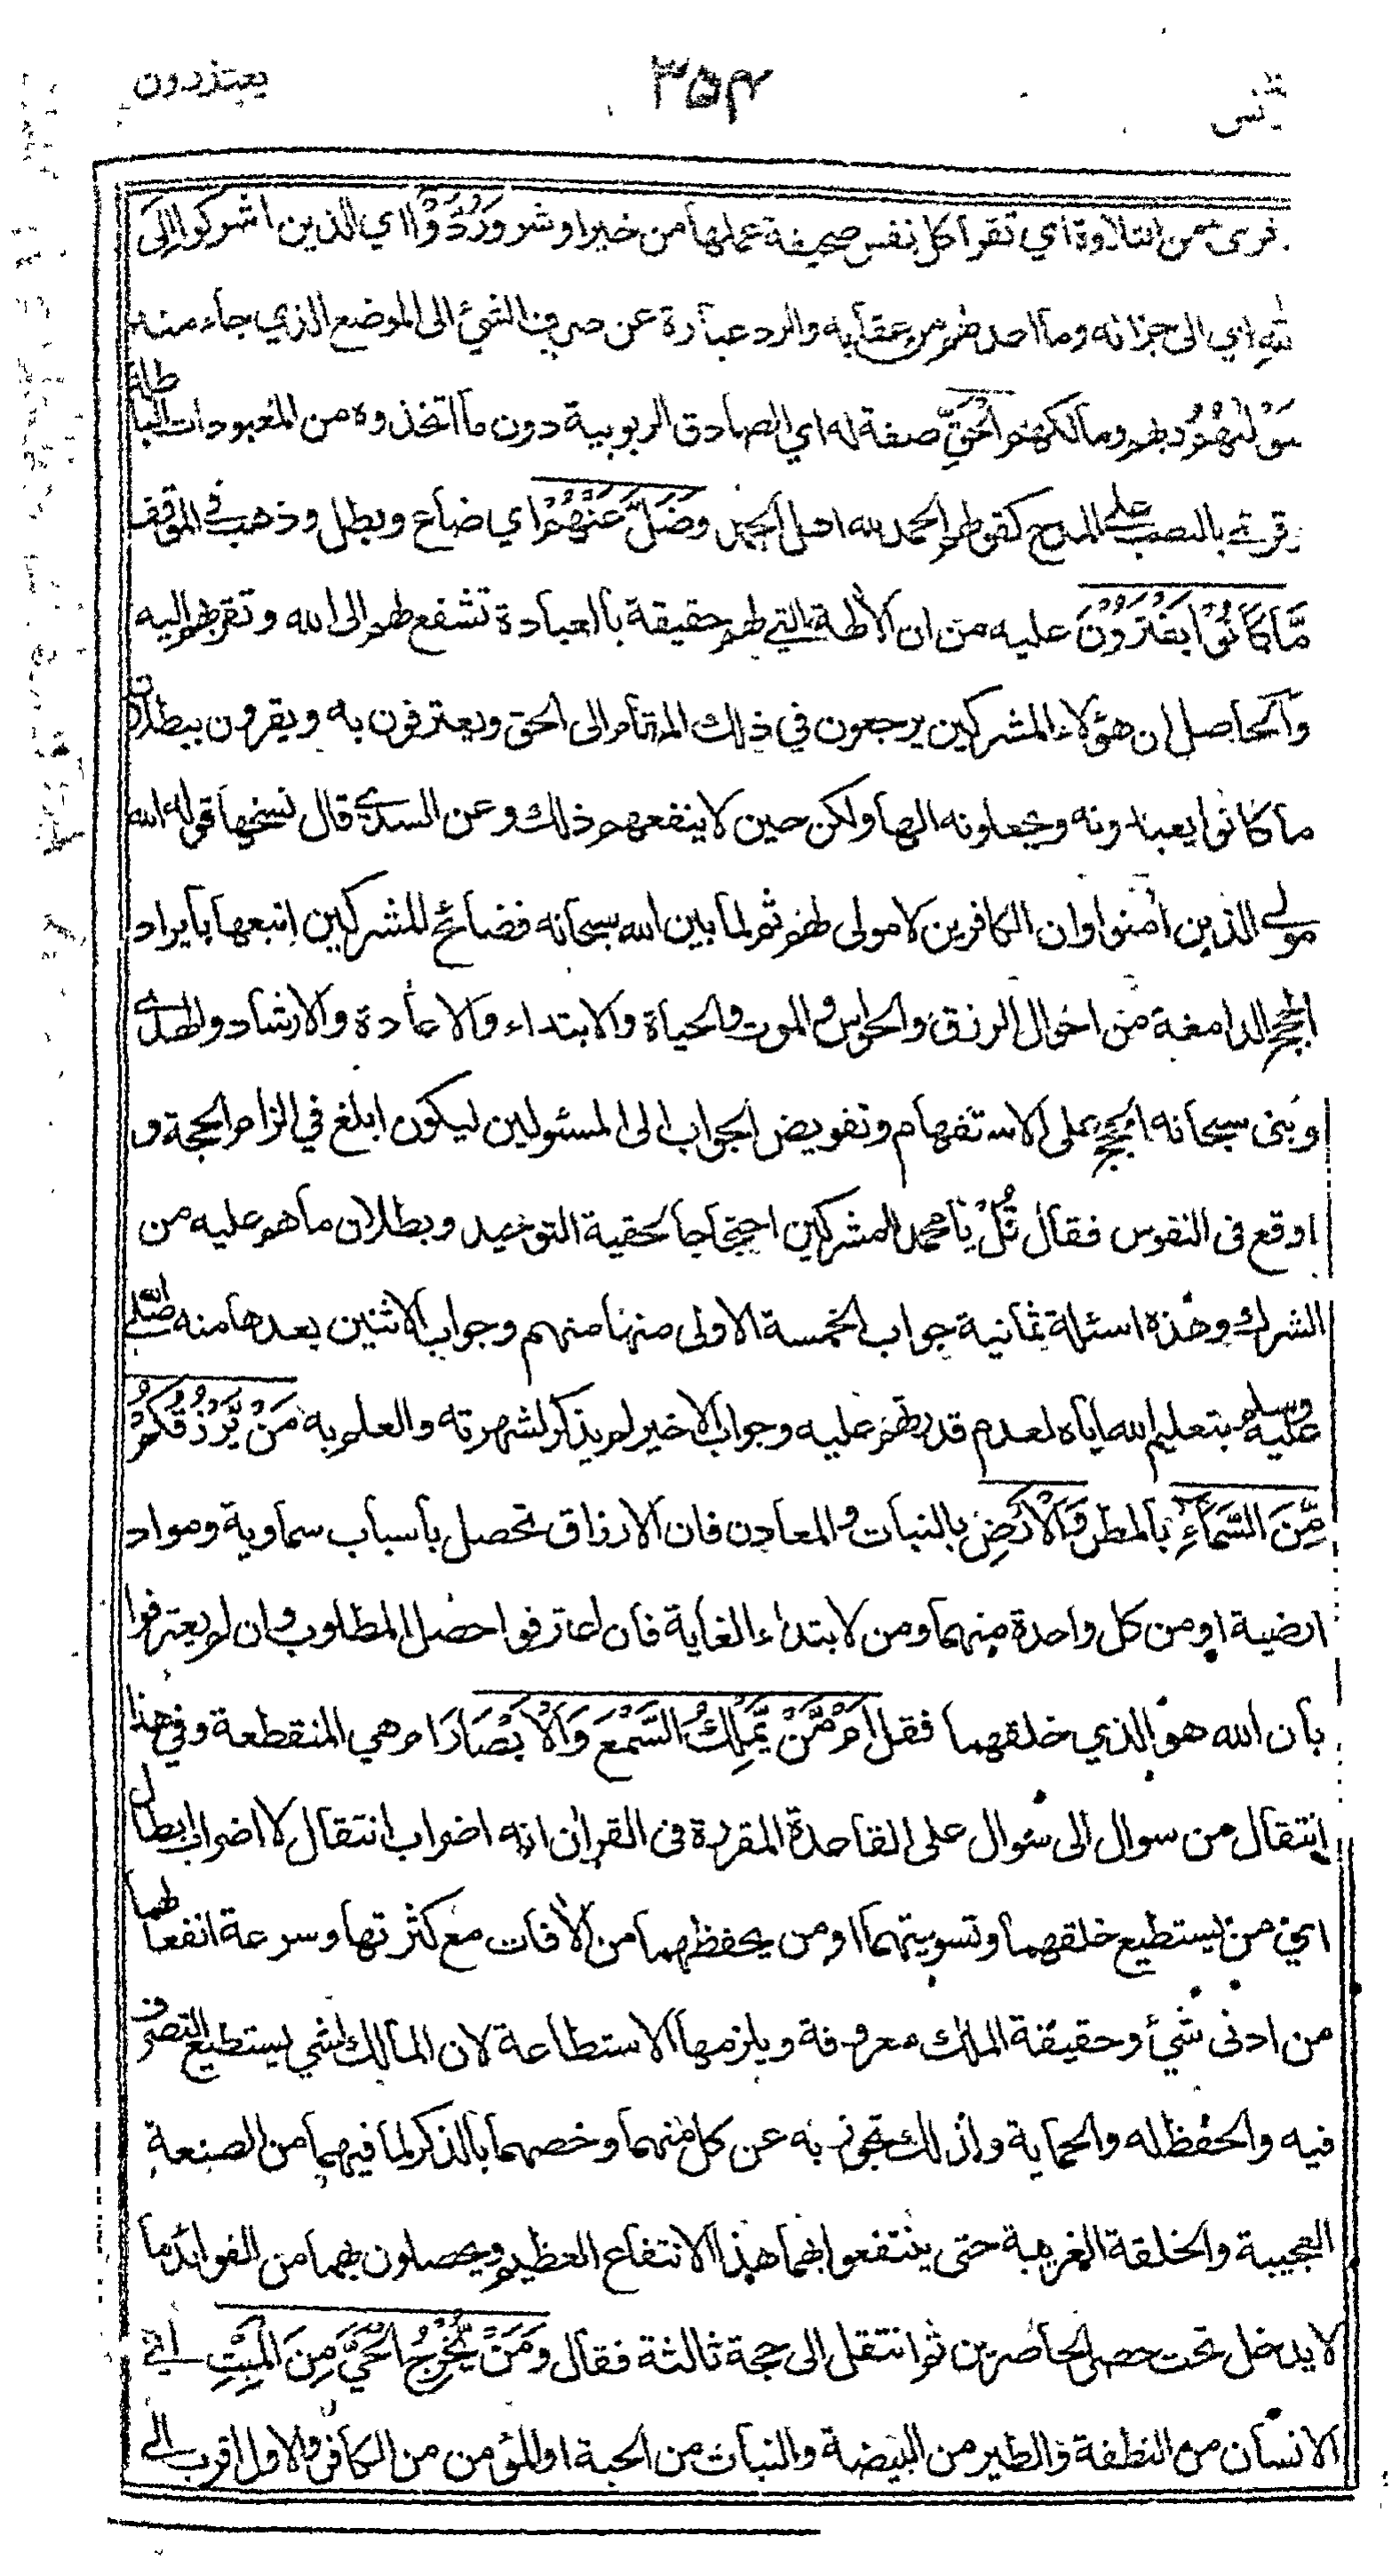 يعتذرون
٣٥٤
يونس
قرئ من التلاوة اي تقرأ كل نفس صحيفة عملها من خير او شر وَرُدُّوْا اي الذين اشركوا اِلَى
اللهِ اي الى جزائه وما اعد لهم من عقابه والرد عبارة عن صرف الشيء الى الموضع الذي جاء منه
مَوْلٰهُمُ ربهم ومالكهم الْحَقِّ صفة له اي الصادق الربوبية دون ما اتخذوه من المعبودات الباطلة
وقرئ بالنصب على المدح كقولهم الحمد لله اهل الحمد وَضَلَّ عَنْهُمْ اي ضاع وبطل وذهب في الموقف
مَّا كَانُوْا يَفْتَرُوْنَ عليه من ان الألهة التي لهم حقيقة بالعبادة تشفع لهم الى الله وتقربهم اليه
والحاصل ان هؤلاء المشركين يرجعون في ذلك المقام الى الحق ويعترفون به ويقرون ببطلان
ما كانوا يعبدونه ويجعلونه الها ولكن حين لا ينفعهم ذلك وعن السدي قال نسخها قوله الله
مولى الذين أمنوا وان الكافرين لا مولى لهم ثم لما بين الله سبحانه فضائح المشركين اتبعها بايراد
الحجج الدامغة من احوال الرزق والحواس والموت والحياة والابتداء والاعادة والارشاد والهدى
وبنى سبحانه الحجج على الاستفهام وتفويض الجواب الى المسئولين ليكون ابلغ في الزام الحجة و
اوقع فى النفوس فقال قُلْ يا محمد للمشركين احتجاجا لحقية التوحيد وبطلان ما هو عليه من
الشرك وهذه اسئلة ثمانية جواب الخمسة الاولى منها منهم وجواب الاثنين بعدها منه صلى الله
عليه وسلم بتعليم الله اياه لعدم قدرتهم عليه وجواب الاخير لم يذكر لشهرته والعلم به مَنْ يَّرْزُقُكُمْ
مِّنَ السَّمَآءِ بالمطر وَالْاَرْضِ بالنبات والمعادن فان الارزاق تحصل بأسباب سماوية ومواد
ارضية او من كل واحدة منهما ومن لابتداء الغاية فان اعترفوا حصل المطلوب وان لم يعترفوا
بأن الله هو الذي خلقهما فقل اَمْ مَّنْ يَّمْلِكُ السَّمْعَ وَالْاَبْصَارَ ام هي المنقطعة وفي هذا
انتقال من سوال الى سوال على القاعدة المقررة فى القرأن انه اضراب انتقال لا اضراب ابطال
اي من يستطيع خلقهما وتسويتهما او من يحفظهما من الأفات مع كثرتها وسرعة انفعالهما
من ادنى شيء وحقيقة الملك معروفة ويلزمها الاستطاعة لان المالك لشي يستطيع التصرف
فيه والحفظ له والحماية ولذلك تجوز به عن كل منهما وخصهما بالذكر لما فيهما من الصنعة
العجيبة والخلقة الغريبة حتى ينتفعوا بهما هذا الانتفاع العظيم ويحصلون بهما من الفوائد ما
لا يدخل تحت حصر الحاصرين ثم انتقل الى حجة ثالثة فقال وَمَنْ يُّخْرِجُ الْحَيَّ مِنَ الْمَيِّتِ اي
الانسان من النطفة والطير من البيضة والنبات من الحبة او المؤمن من الكافر والاول اقرب الى